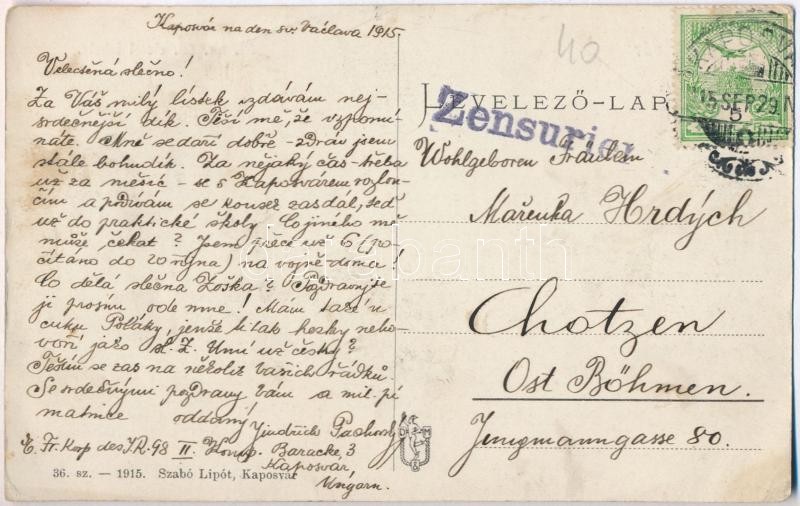 Kaposvár na den sv. Václava 1915.
Velectěná slečno!
Za Váš milý lístek vzdávám nej-
srdečnější dík. Těší mě, že vzpomí-
náte. Mně se daří dobře – zdráv jsem
stále bohudík. Za nějaký čas – třeba
už za měsíc – se s Kaposvárem rozlou-
čím a podívám se kousek zas dál, teď
už do praktické školy. Co jiného mě
může čekat? Jsem přece už 6 (po-
čítáno do 20 října) na vojně doma!
Co dělá slečna Zoška? Pozdravujte
ji prosím ode mne! Mám také u
cuku Poláky, jenže ti tak hezky neho-
voří jako sl. Z. Umí už česky?
Těším se zas na několik Vašich řádků.
Se srdečnými pozdravy Vám a mil. pí
matince
oddaný Jindřich
E. Fr. Korp des I.R. 98 II. Komp. Baracke, 3
Kaposvár
Ungarn.
36. sz. — 1915. Szabó Lipót, Kaposvár
40
LEVELEZŐ-LAP
Zensuriert
KAPOSVÁR
915 SEP. 29. N
5
Wohlgeboren Fräulein
Mařenka Hrdých
Chotzen
Ost Böhmen.
Jungmanngasse 80.
darabanth